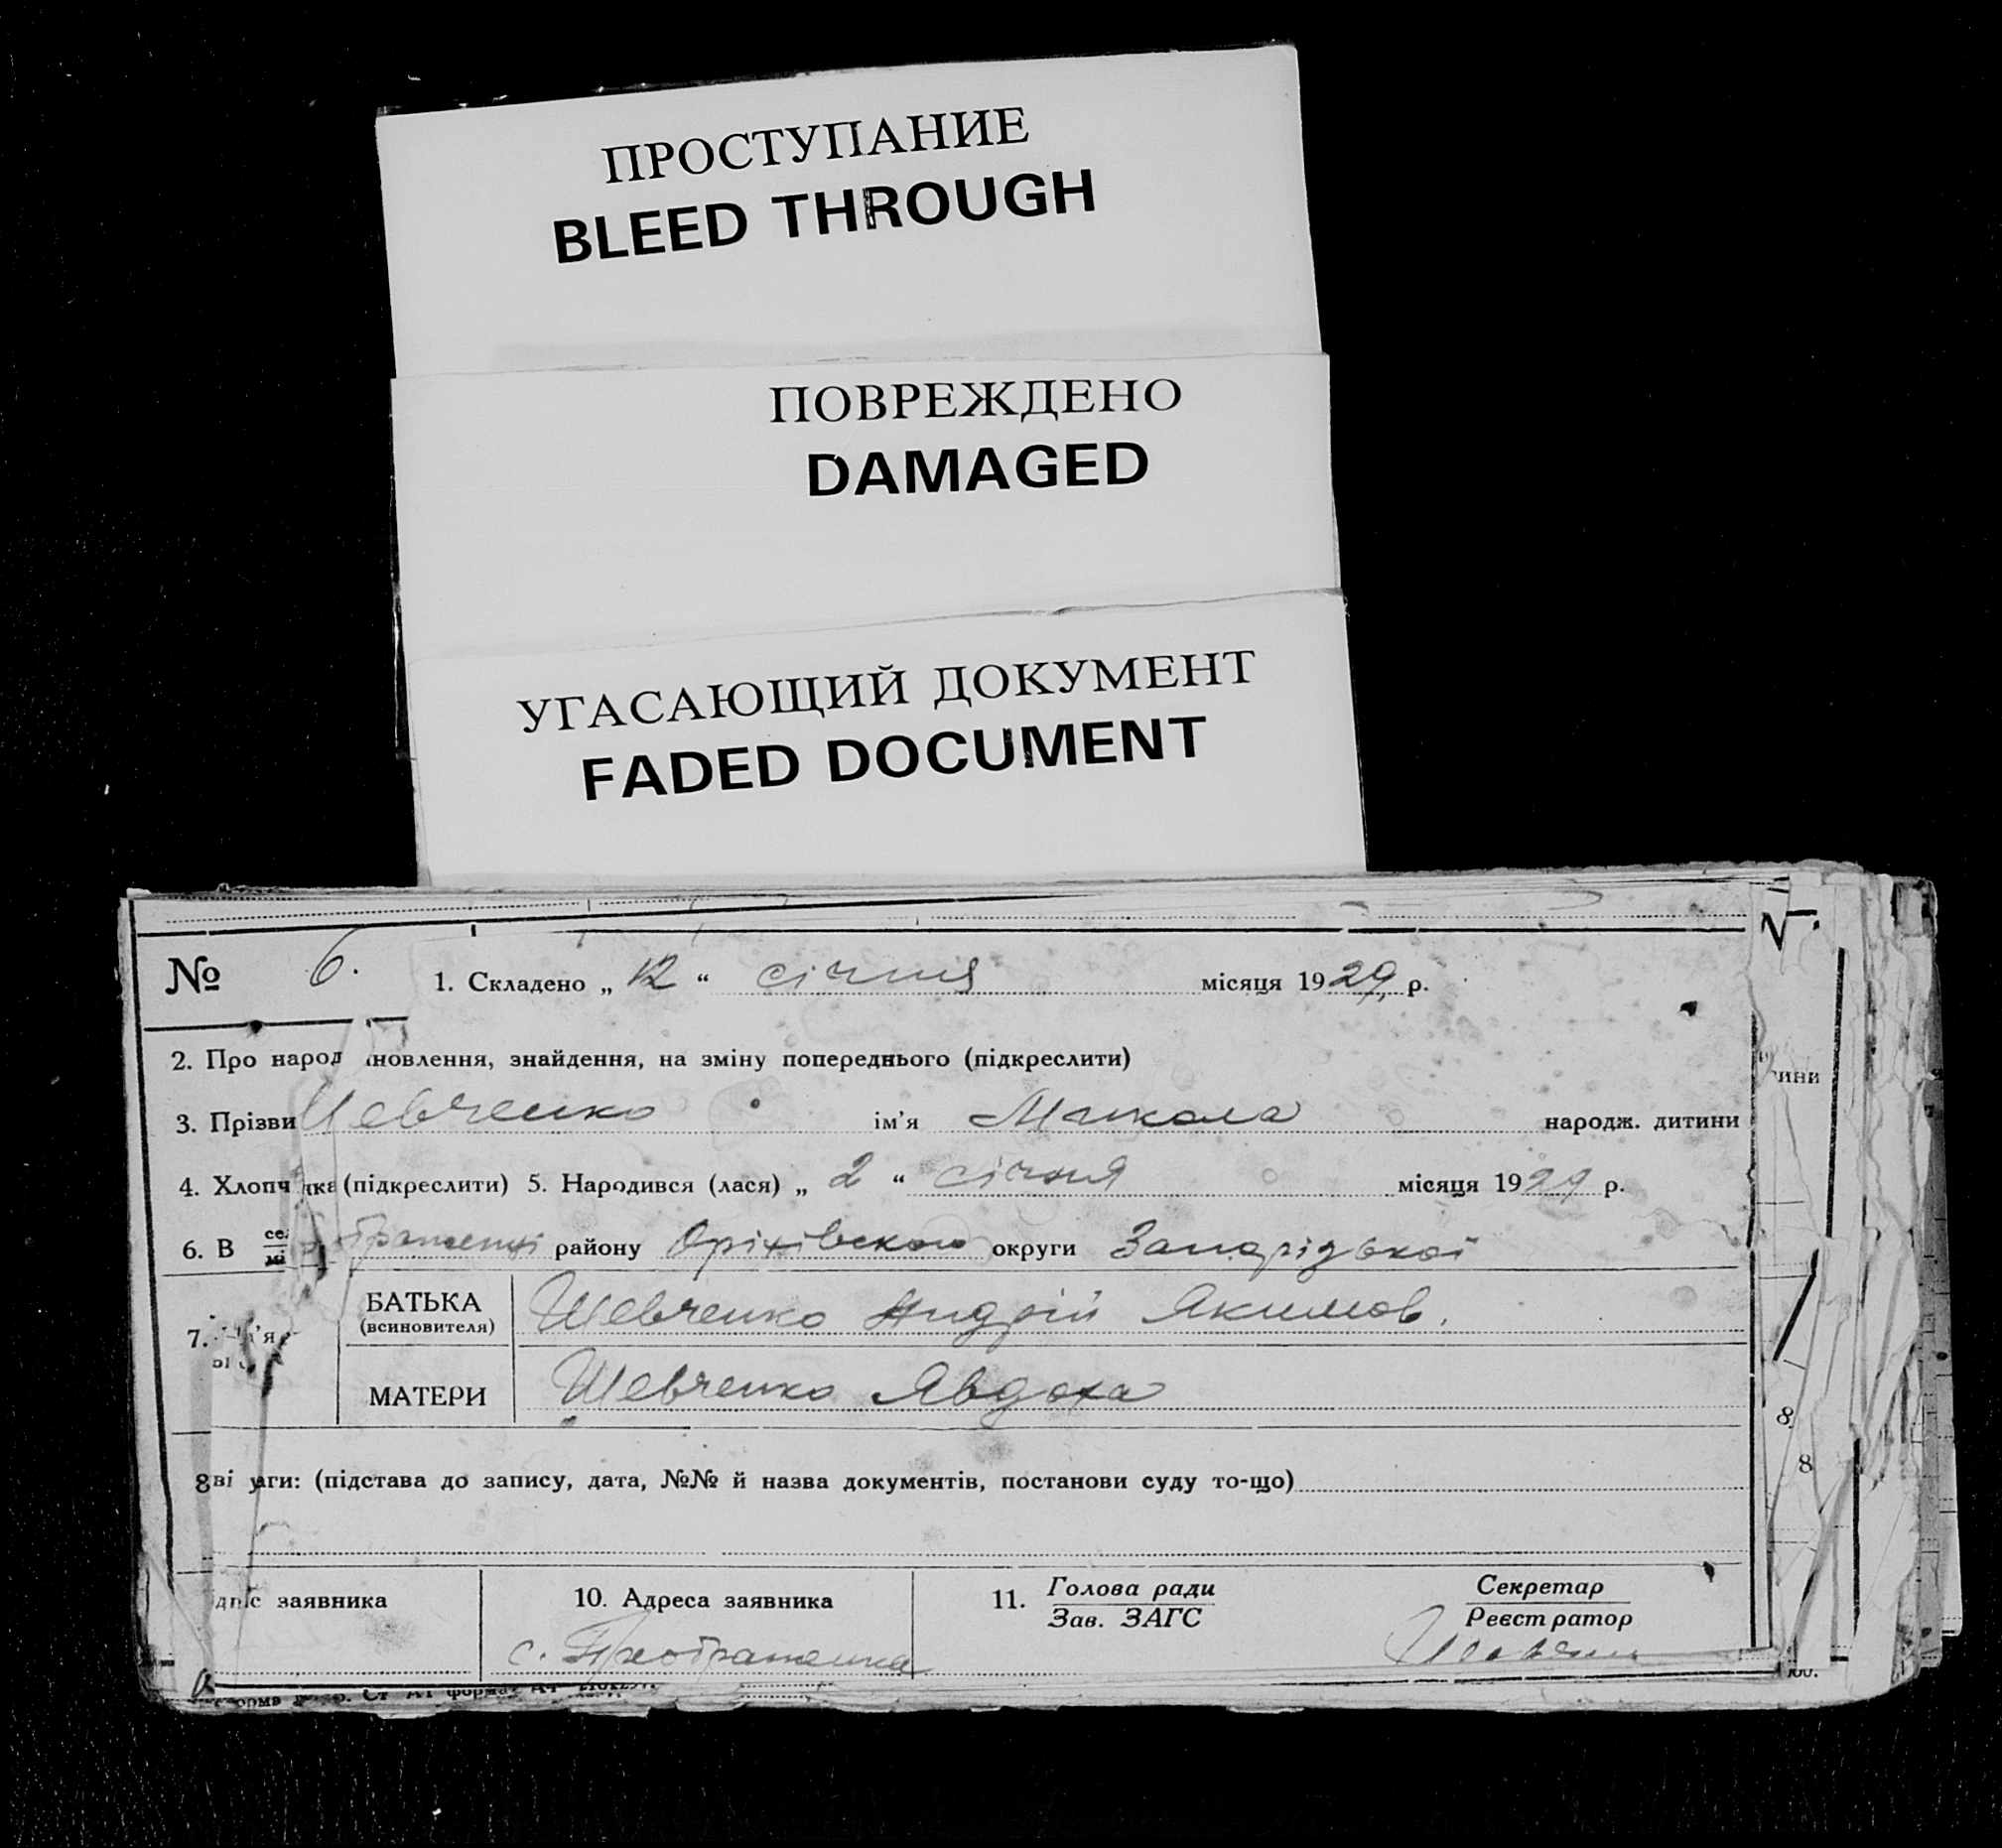 ПРОСТУПАНИЕ
BLEED THROUGH
ПОВРЕЖДЕНО
DAMAGED
УГАСАЮЩИЙ ДОКУМЕНТ
FADED DOCUMENT
№ 6. 1. Складено „ 12 “ січня місяця 1929 р.
2. Про народ новлення, знайдення, на зміну попереднього (підкреслити)
тини
3. Прізви Шевченко ім'я Микола народж. дитини
4. Хлопч чка (підкреслити) 5. Народився (лася) „ 2 “ січня місяця 1929 р.
6. В району Оріхівського округи Запорізької
7. БАТЬКА
(всиновителя) Шевченко Андрій Якимов.
МАТЕРИ Шевченко Явдоха
8
8ві уаги: (підстава до запису, дата, №№ й назва документів, постанови суду то-що)
8
дпіс заявника 10. Адреса заявника 11. Голова ради
Зав. ЗАГС Секретар
Реєстратор
с. Преображенка